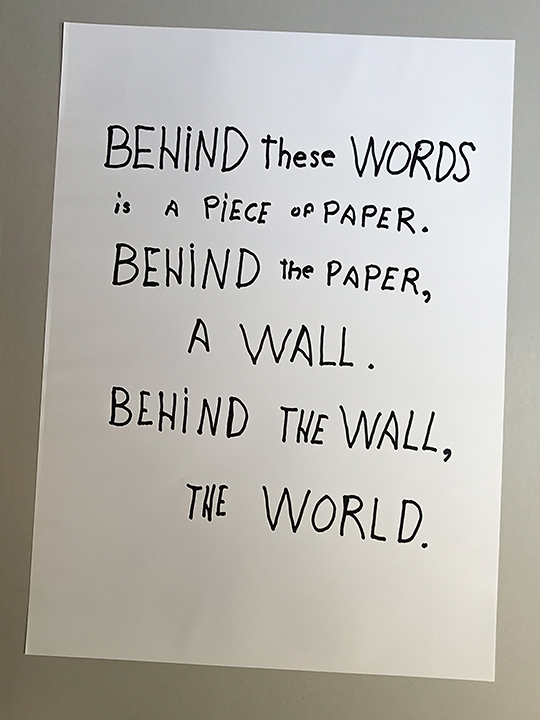 BEHiND these WORDS
is A PiECE OF PAPER.
BEHIND the PAPER,
A WALL.
BEHiND THE WALL,
THE WORLD.